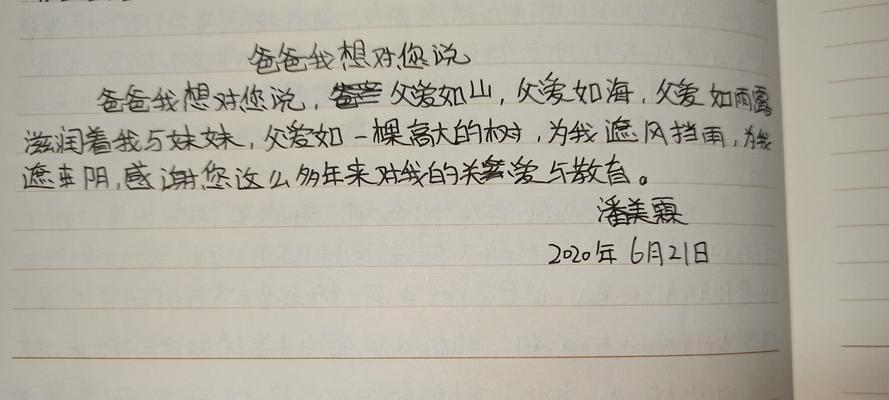 爸爸我想对您说
爸爸我想对您说，父爱如山，父爱如海，父爱如雨露
滋润着我与妹妹，父爱如一棵高大的树，为我遮风挡雨，为我
遮阴，感谢您这么多年来对我的关爱与教育。
潘美霖
2020年6月21日